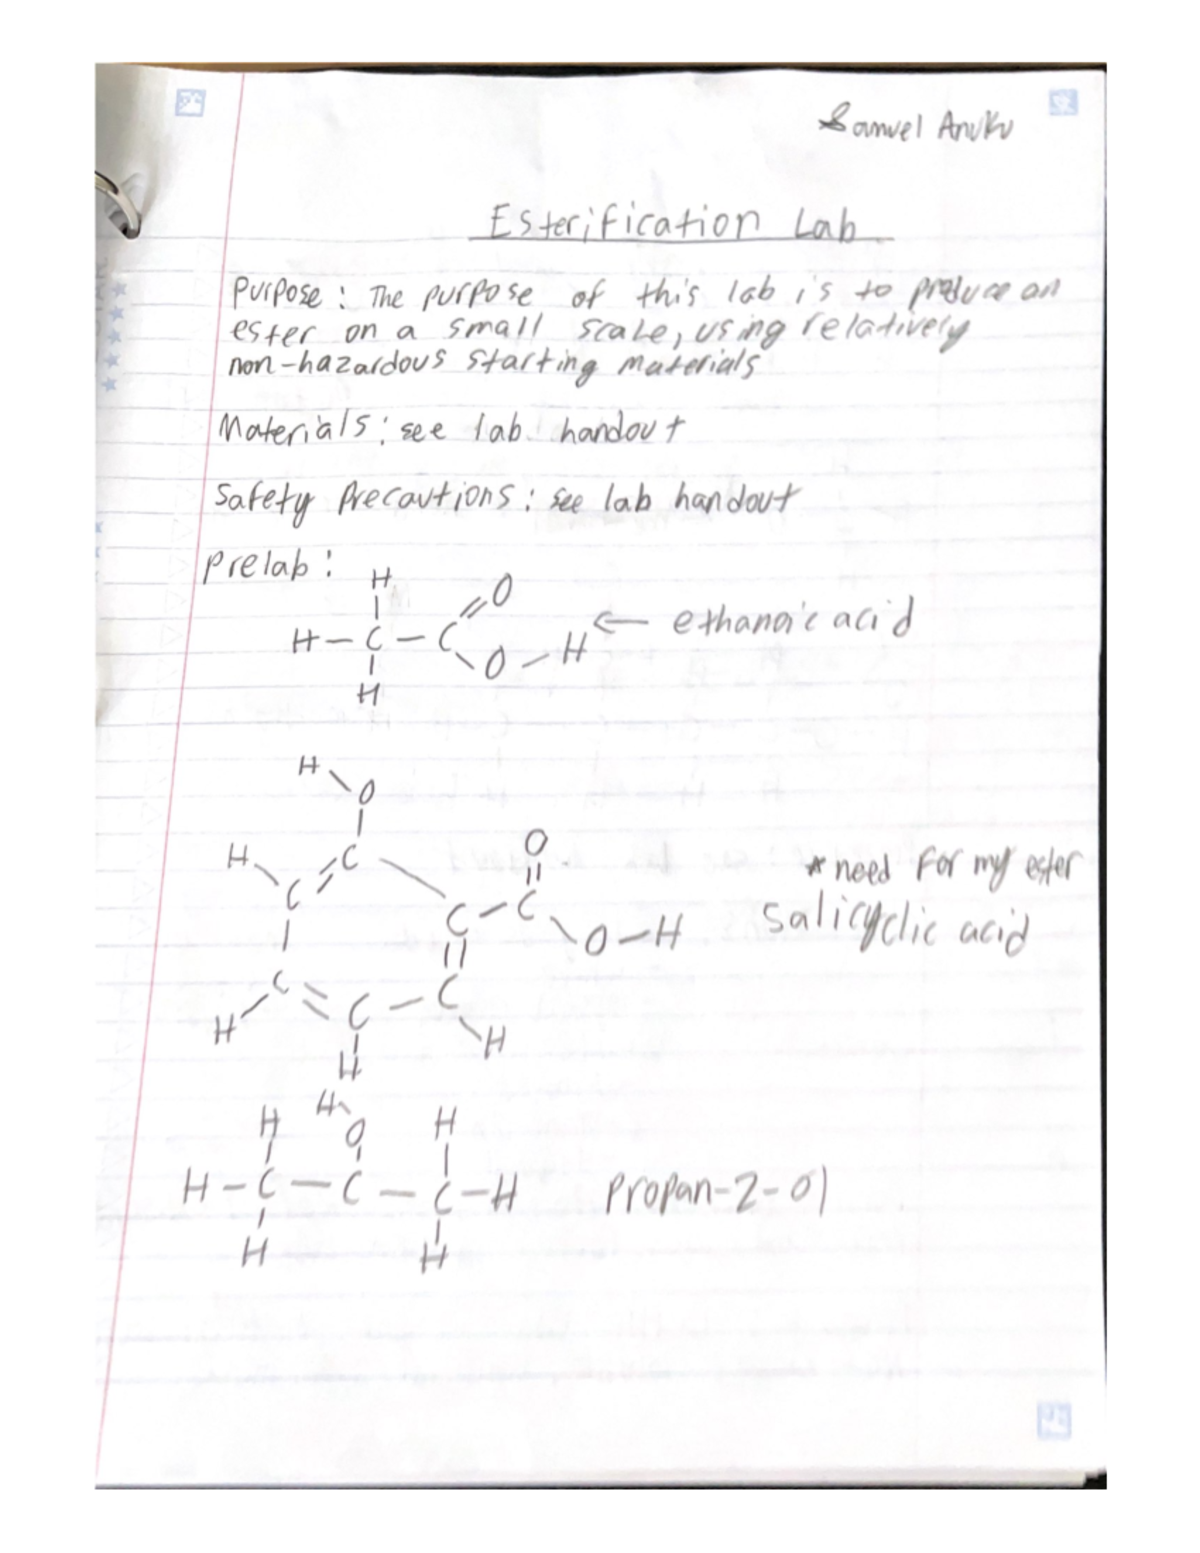 Samuel Anuku
Esterification Lab
Purpose: The purpose of this lab is to produce an
ester on a small scale, using relatively
non-hazardous starting materials
Materials: see lab handout
Safety Precautions: see lab handout
Prelab:
H
O
H-C-C
O-H
← ethanoic acid
H
H
O
H
C
O
* need for my ester
C
C-C
O-H
salicyclic acid
C
C
C
H
H
H
H
H
O
H
H-C-C-C-H
Propan-2-ol
H
H